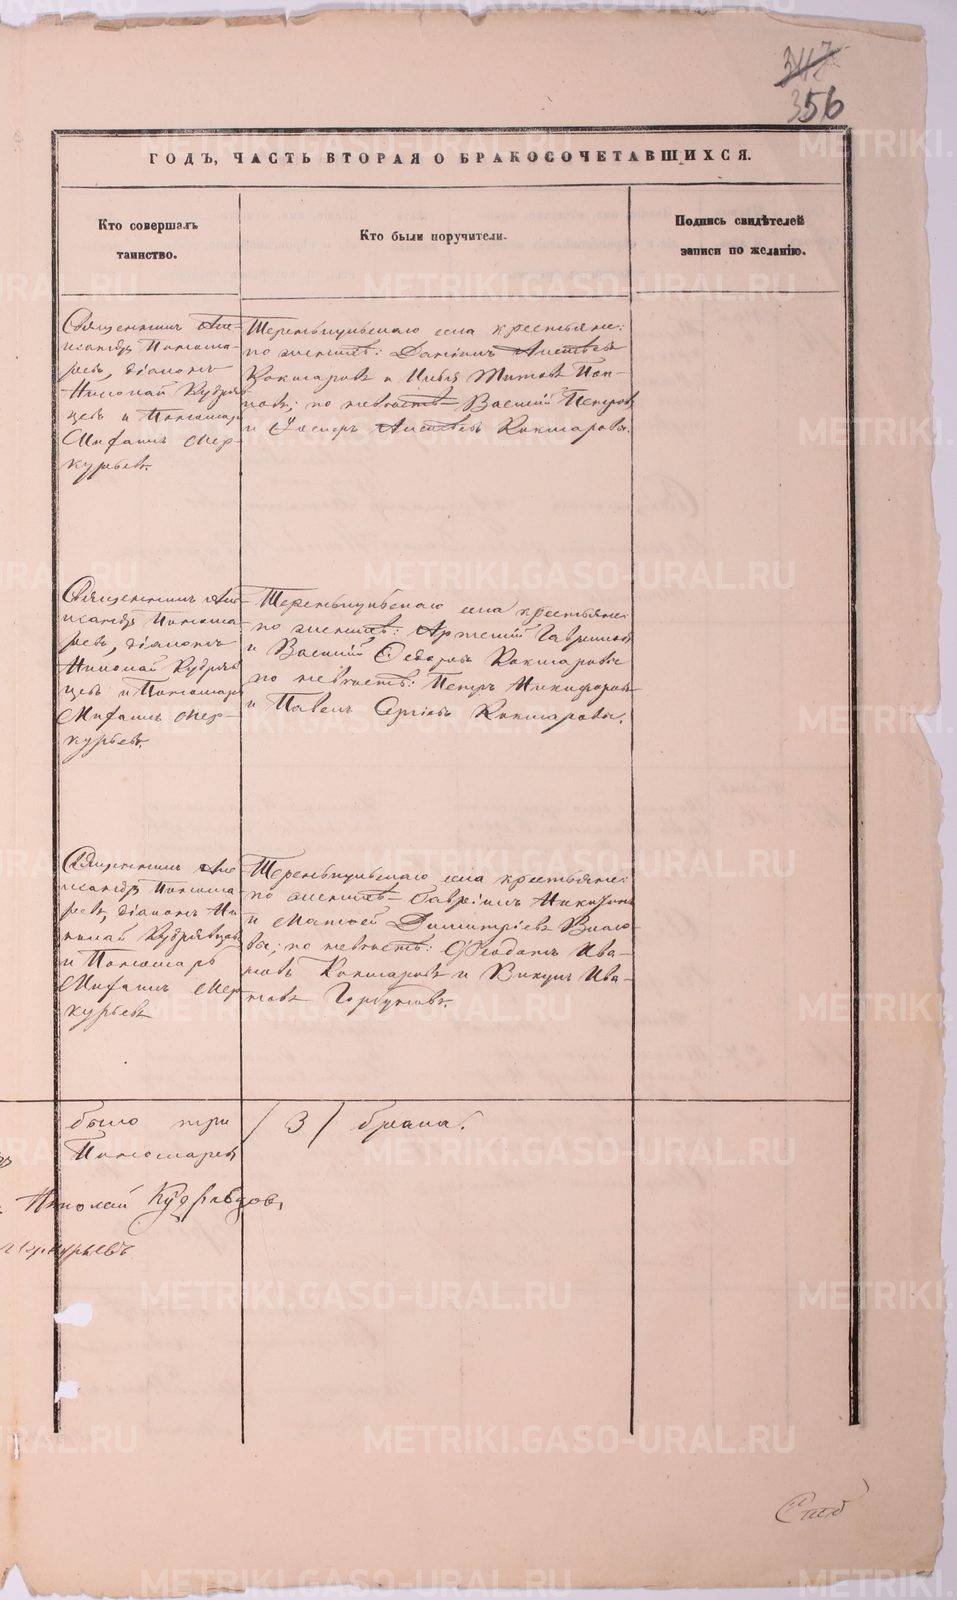 347
356
ГОДЪ, ЧАСТЬ ВТОРАЯ О БРАКОСОЧЕТАВШИХСЯ.
Кто совершалъ
таинство.
Кто были поручители.
Подпись свидѣтелей
записи по желанію.
Священникъ Але-
ксандръ Понома-
ревъ, діаконъ
Николай Кудряв-
цевъ и Пономарь
Мер-
курьевъ.
села крестьяне:
по женихѣ: Даніилъ
Кокшаровъ и Илья Титовъ Поп-
ковъ; по невѣстѣ: Василій Петровъ
и Кокшаровы.
Священникъ Але-
ксандръ Понома-
ревъ, діаконъ
Николай Кудряв-
цевъ и Пономарь
Мер-
курьевъ.
села крестьяне:
по женихѣ: Артемій Гавриловъ
и Василій Ѳедоровъ Кокшаровы
по невѣстѣ: Петръ Никифоровъ
и Павелъ Сергѣевъ Кокшаровы.
Священникъ Але-
ксандръ Понома-
ревъ, діаконъ Ни-
колай Кудрявцевъ
и Пономарь
Мер-
курьевъ
села крестьяне:
по женихѣ: Гавріилъ
и Матвей Димитріевъ
по невѣстѣ: Ива-
новъ Кокшаровъ и Викулъ Ива-
новъ Горбуновъ.
было три /3/ брака.
Пономаревъ
Николай Кудрявцов,
Меркурьевъ
METRIKI.GASO-URAL.RU